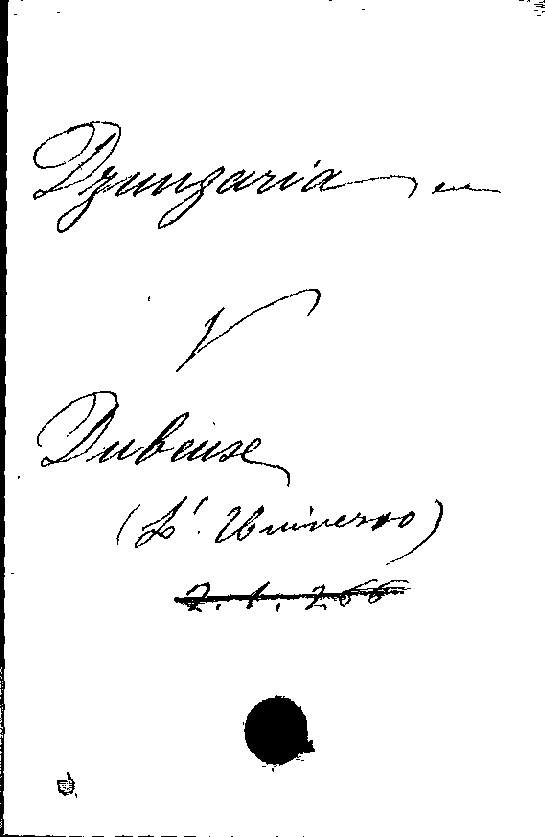 Dzungaria, en
V
Dubeuse
(L'Universo)
2. 1. 266